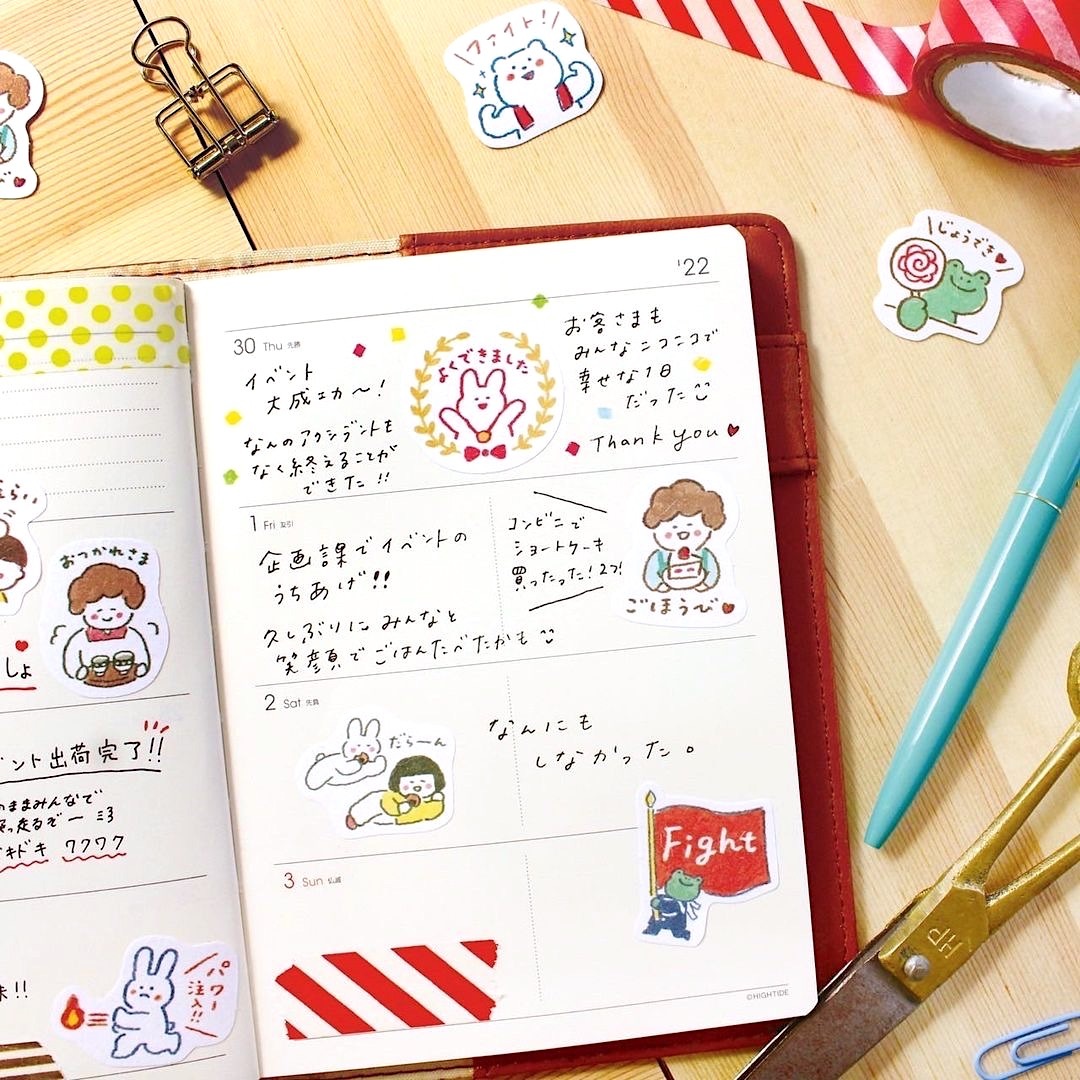 ファイト!
じょうでき
'22
30 Thu 先勝
イベント
大成功〜!
なんのアクシデントも
なく終えることが
できた!!
よくできました
お客さまも
みんなニコニコで
幸せな1日
だった
Thank you
1 Fri 友引
企画課でイベントの
うちあげ!!
久しぶりにみんなと
笑顔でごはんたべたかも
コンビニで
ショートケーキ
買ったった!2つ!
ごほうび
2 Sat 先負
だらーん
なんにも
しなかった。
Fight
3 Sun 仏滅
©HIGHTIDE
おつかれさま
しょ
ント出荷完了!!
のままみんなで
走るぞー
キドキ ワクワク
!!
パワー
注入!!
HP